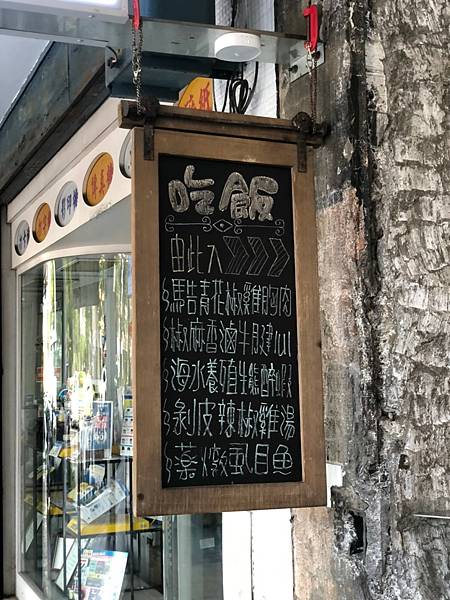 吃飯
由此入
馬告青花椒雞胸肉
椒麻香滷牛腱
海水養殖生態醉蝦
剝皮辣椒雞湯
藥燉虱目魚